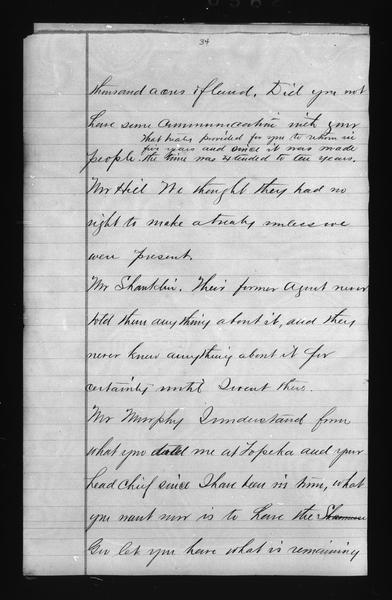 34
thousand acres of land. Did you not
have some communication with your
that treaty provided for you to return in
five years and since it was made
people. the time was extended to ten years.
Mr Hill We thought they had no
right to make a treaty unless we
were present.
Mr Shanklin. Their former agent never
told them anything about it, and they
never knew anything about it for
certainty until I went there.
Mr Murphy I understand from
what you told me at Topeka and your
head chief since I have been in town, what
you want now is to have the Shawnee
Gov let you have what is remaining